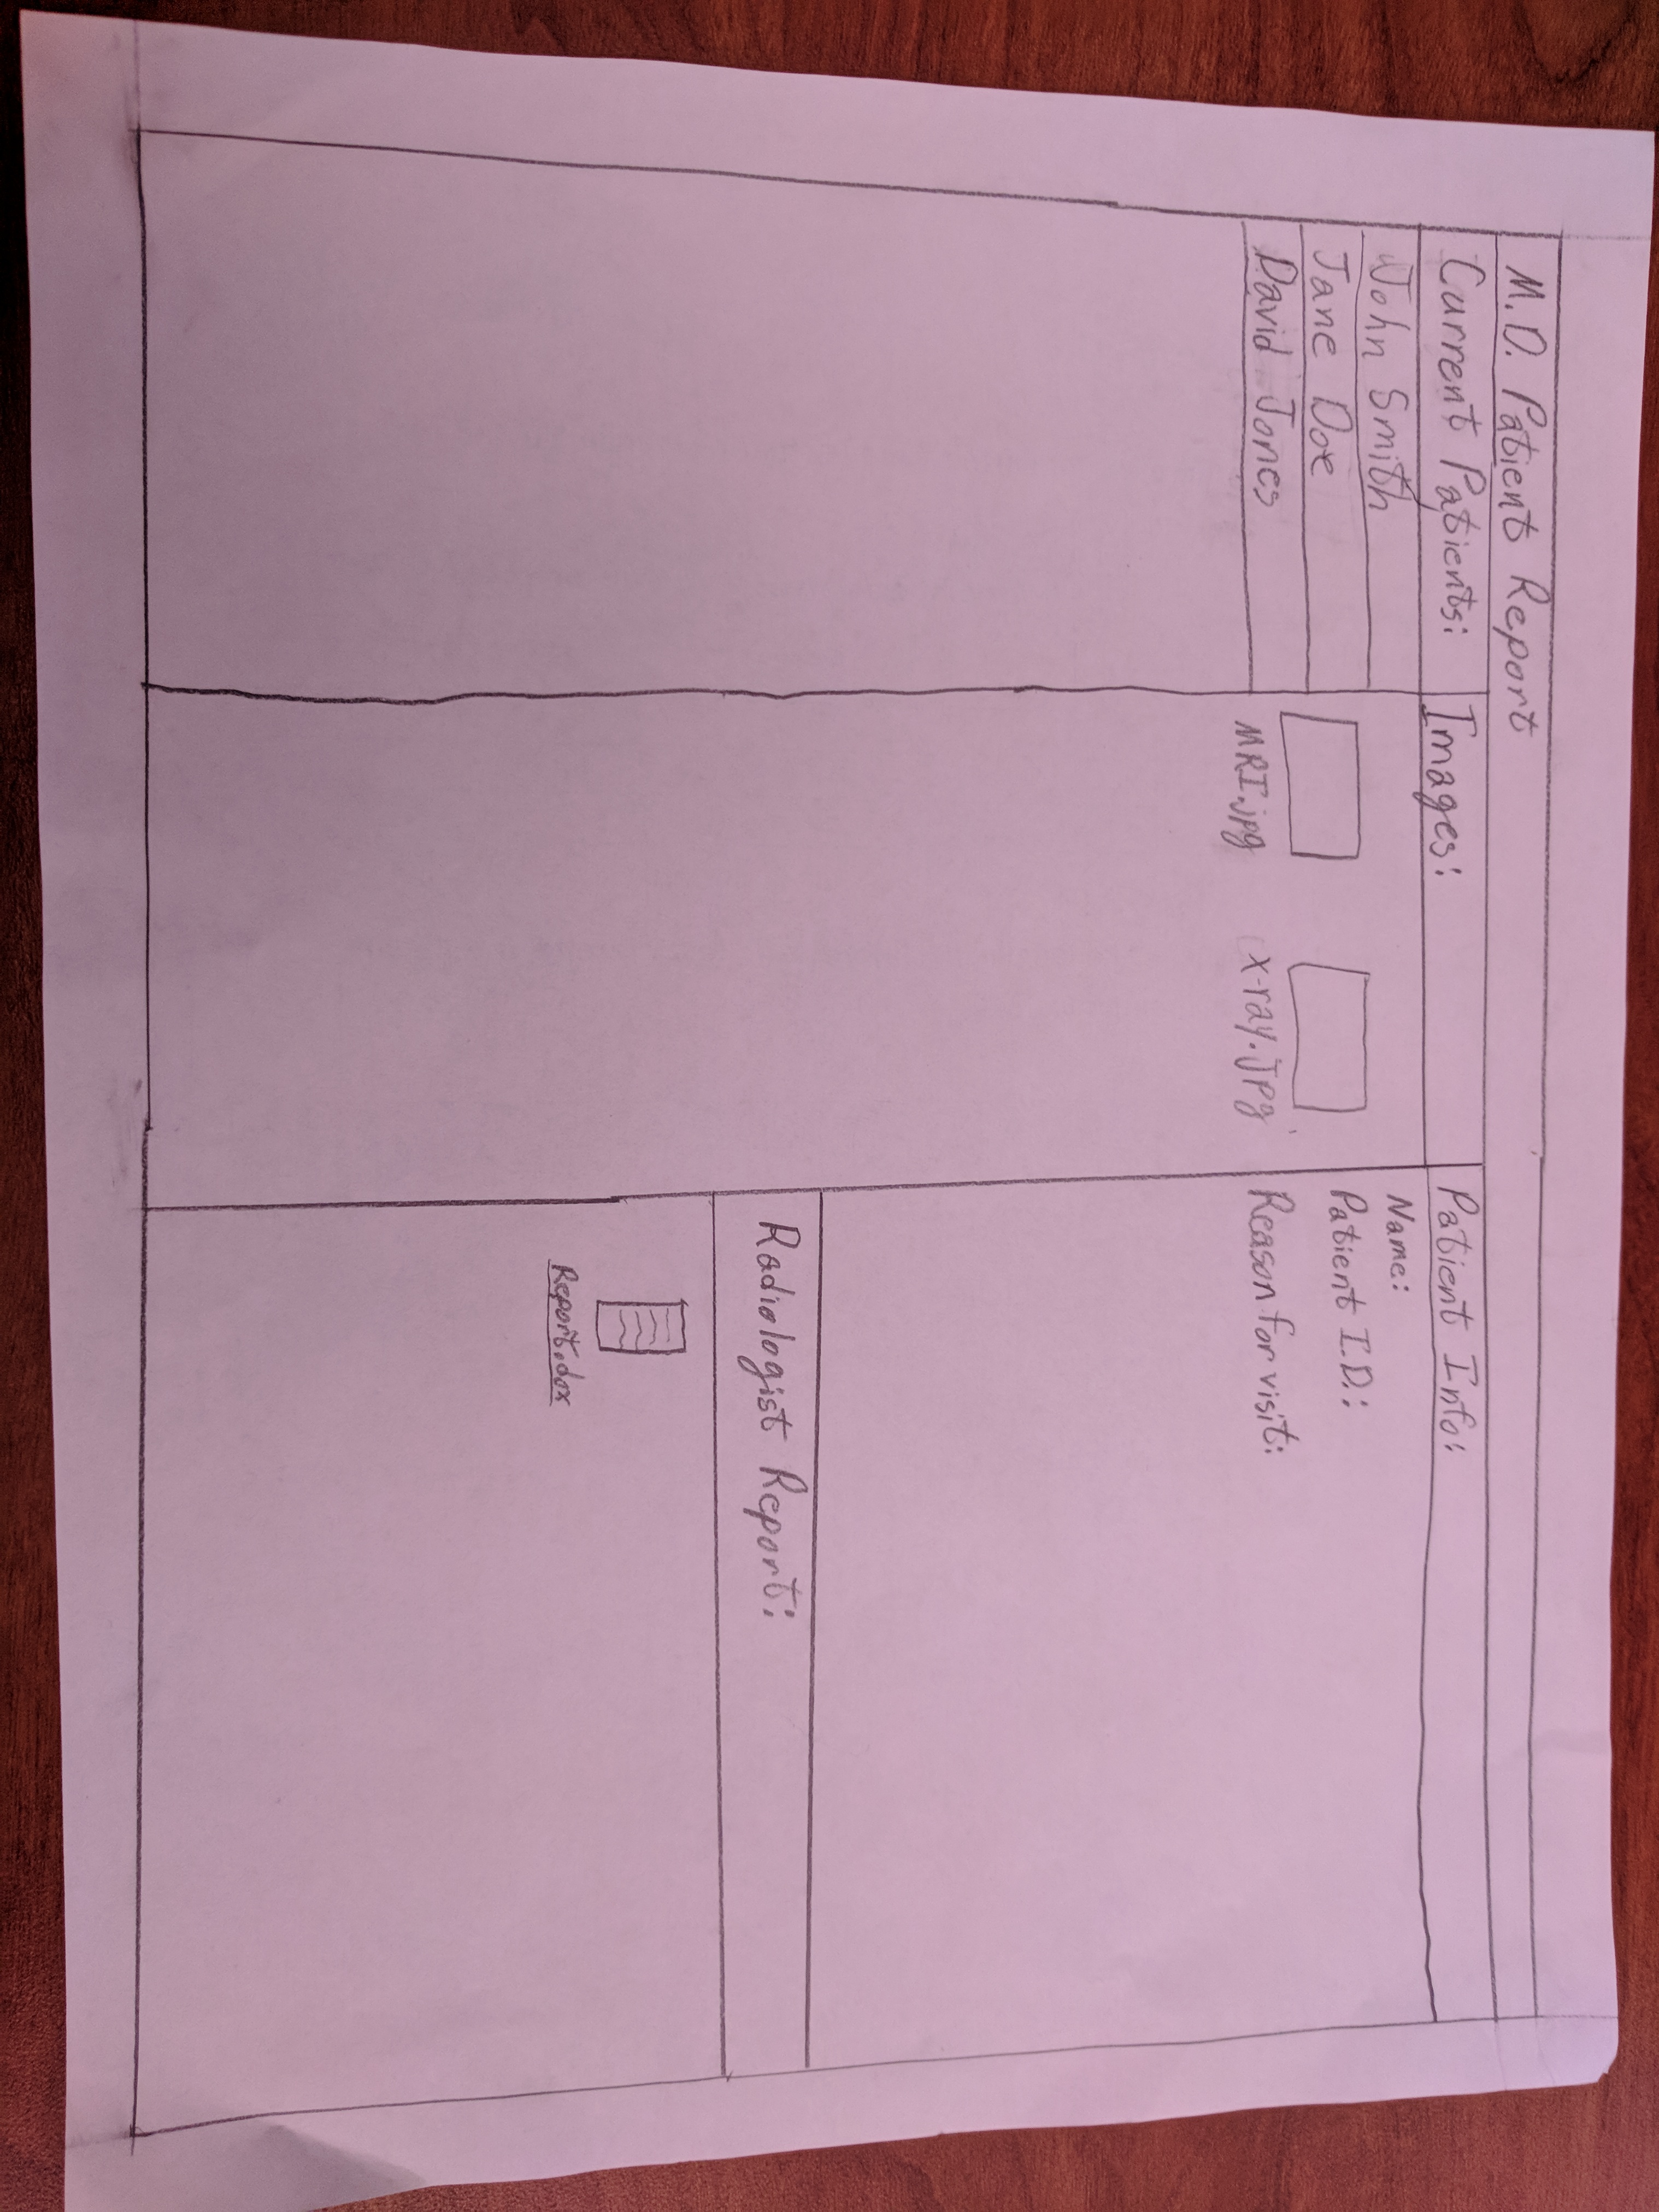 M.D. Patient Report
Current Patients:
John Smith
Jane Doe
David Jones
Images:
MRI.jpg
x-ray.Jpg
Patient Info:
Name:
Patient I.D.:
Reason for visit:
Radiologist Report:
Report.dox